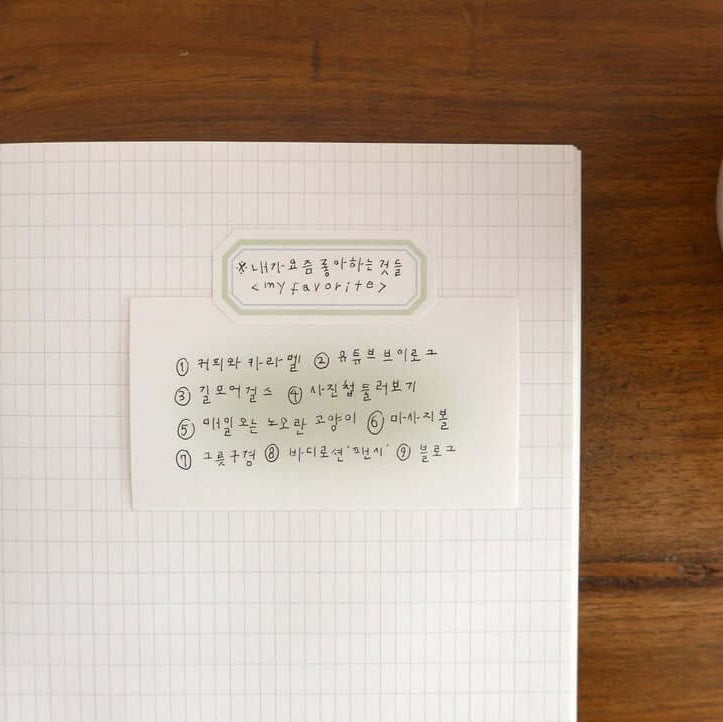 ※ 내가 요즘 좋아하는 것들
<my favorite>
① 커피와 카라멜 ② 유튜브 브이로그
③ 길모어걸스 ④ 사진첩 둘러보기
⑤ 매일 오는 노오란 고양이 ⑥ 마사지볼
⑦ 그릇구경 ⑧ 바디로션 '팬시' ⑨ 블로그